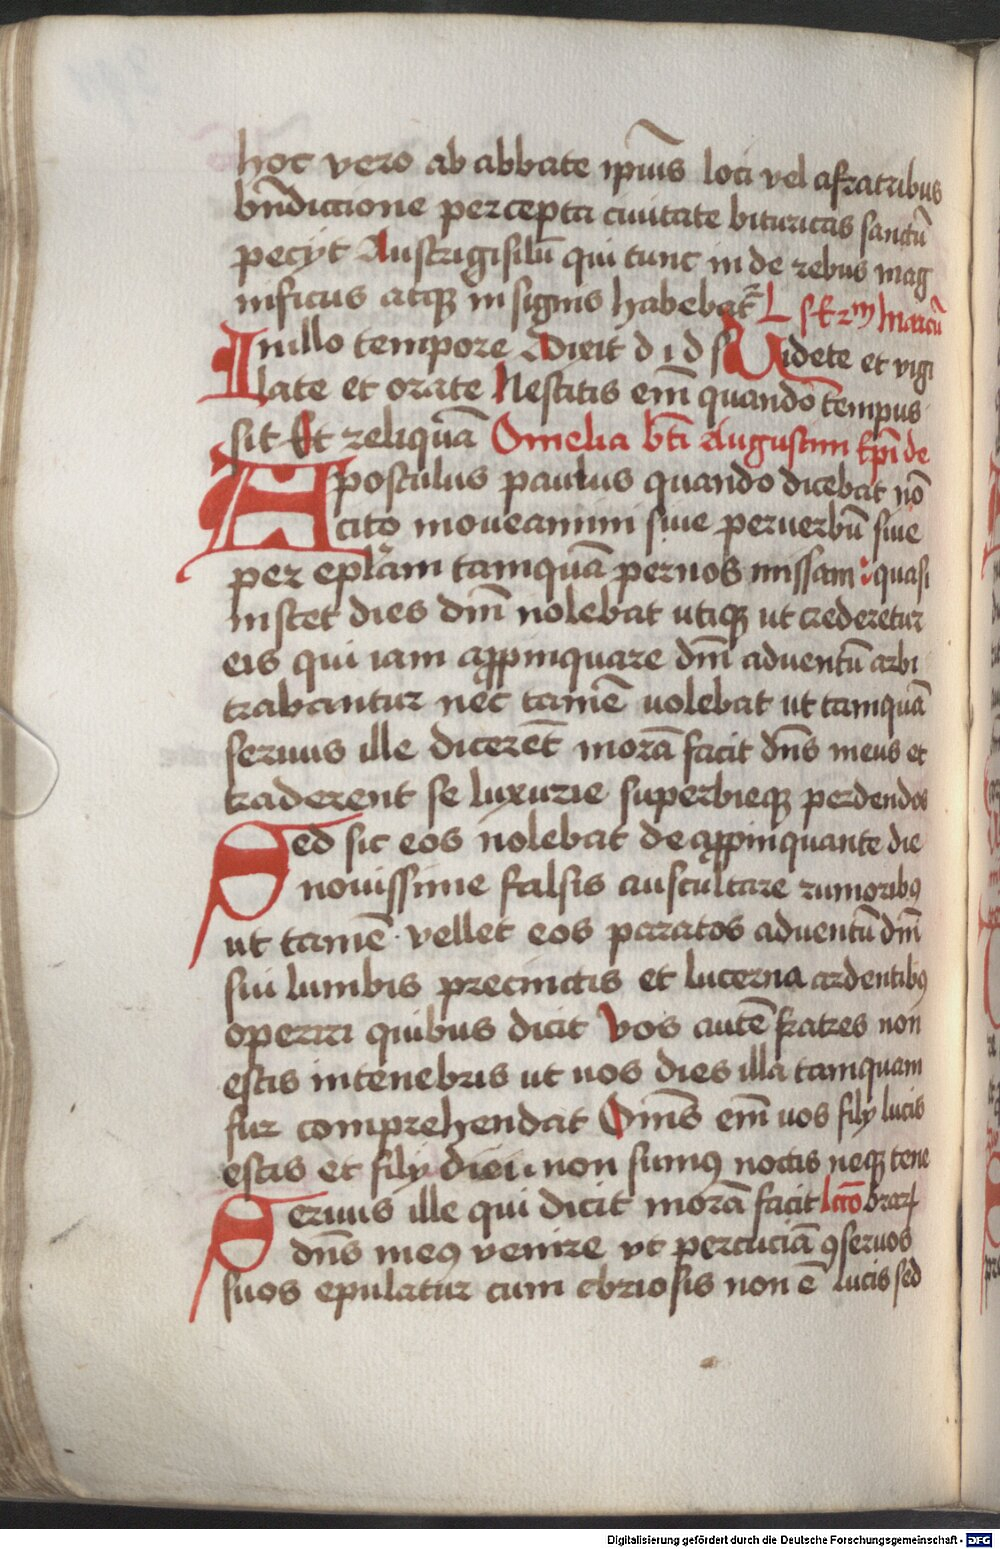 hoc vero ab abbate ipiu̅s loci vel afratribus
bn̄dictione percepta ciuitate bituricas sanctū
pecijt Austrigisilū qui tunc inde rebus mag
nificus atqꝫ insignis habebat̄ L sꝫ
Inillo tempore Dixit d i d s Uidete et vigi
late et orate Nescitis em̄ quando tempus
sit Et reliquā Omelia bt̄i Augustini Ep̄i de
Apostulus paulus quando dicebat nō
cito moueamini siue peruerbū siue
per epl̄am tamquā pernos missam quasi
instet dies dn̄i nolebat utiqꝫ ut crederetur
eis qui iam aꝓpinquare dn̄i aduentū arbi
trabantur nec tamē uolebat ut tamquā
seruus ille dicerēt morā facit dn̄s meus et
traderent se luxurie superbieqꝫ perdendos
Sed sic eos nolebat deaꝓpinquante die
nouissime falsis auscultare rumoribꝯ
ut tamē vellet eos paratos aduentū dn̄i
sui lumbis precinctis et lucerna ardentibꝯ
operiri quibus dicit Vos autē fratres non
estis intenebris ut uos dies illa tamquam
fur comprehendat Omn̄s em̄ uos filij lucis
estis et filij diei non sumꝯ noctis neqꝫ tene
Seruus ille qui dicit morā facit lcc̄o brarꝝ
dn̄s meꝯ venire vt percuciā ꝯseruos
suos epulatur cum ebriosis non ē lucis sed
Digitalisierung gefördert durch die Deutsche Forschungsgemeinschaft - DFG